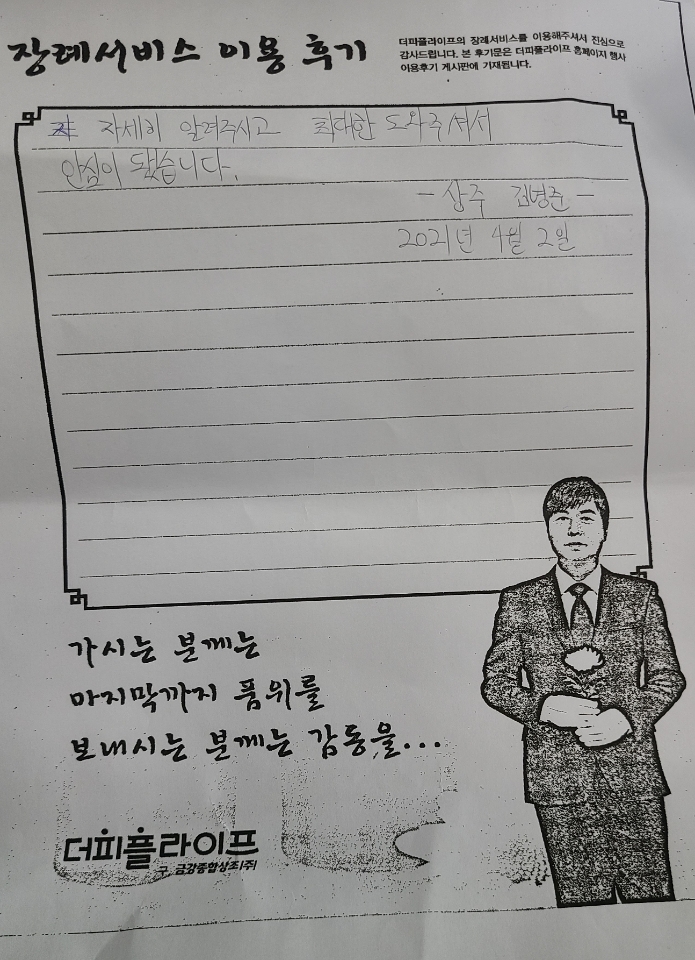 장례서비스 이용 후기
더피플라이프의 장례서비스를 이용해주셔서 진심으로
감사드립니다. 본 후기문은 더피플라이프 홈페이지 행사
이용후기 게시판에 기재됩니다.
자세히 알려주시고 최대한 도와주셔서
안심이 됐습니다.
- 상주 김병준 -
2021년 4월 2일
가시는 분께는
마지막까지 품위를
보내시는 분께는 감동을...
더피플라이프
구. 금강종합상조(주)